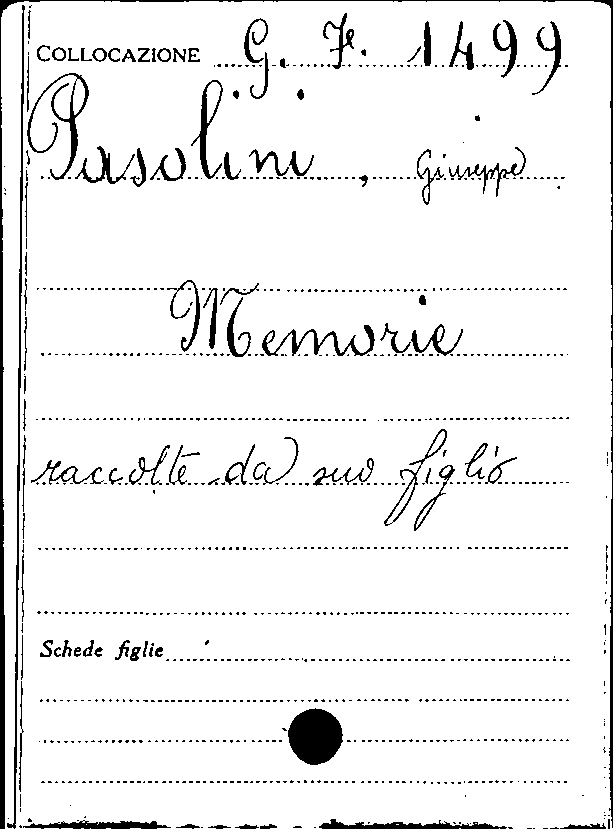 COLLOCAZIONE G. F. 1499
Pasolini, Giuseppe
Memorie
raccolte da suo figlio
Schede figlie